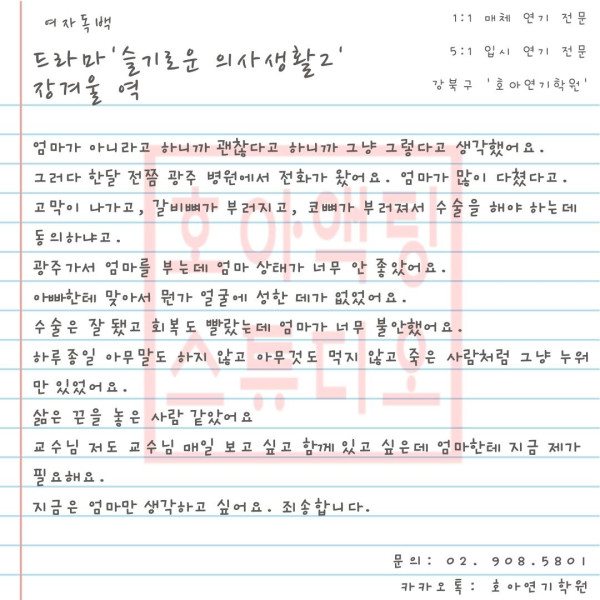 여자독백
1:1 매체 연기 전문
드라마 '슬기로운 의사생활2'
5:1 입시 연기 전문
장겨울 역
강북구 '호아연기학원'
엄마가 아니라고 하니까 괜찮다고 하니까 그냥 그렇다고 생각했어요.
그러다 한달 전쯤 광주 병원에서 전화가 왔어요. 엄마가 많이 다쳤다고.
고막이 나가고, 갈비뼈가 부러지고, 코뼈가 부러져서 수술을 해야 하는데
동의하냐고.
광주가서 엄마를 부는데 엄마 상태가 너무 안 좋았어요.
아빠한테 맞아서 뭔가 얼굴에 성한 데가 없었어요.
수술은 잘 됐고 회복도 빨랐는데 엄마가 너무 불안했어요.
하루종일 아무말도 하지 않고 아무것도 먹지 않고 죽은 사람처럼 그냥 누워
만 있었어요.
삶은 끈을 놓은 사람 같았어요
교수님 저도 교수님 매일 보고 싶고 함께 있고 싶은데 엄마한테 지금 제가
필요해요.
지금은 엄마만 생각하고 싶어요. 죄송합니다.
호아액팅
스튜디오
문의: 02. 908.5801
카카오톡: 호아연기학원